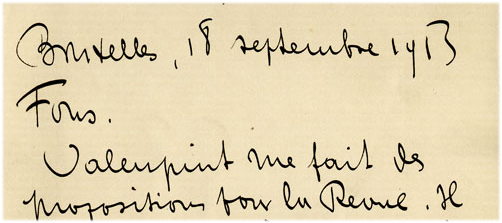 Bruxelles, 18 septembre 1913
Fons.
Valenpint me fait des
propositions pour la Revue. Il